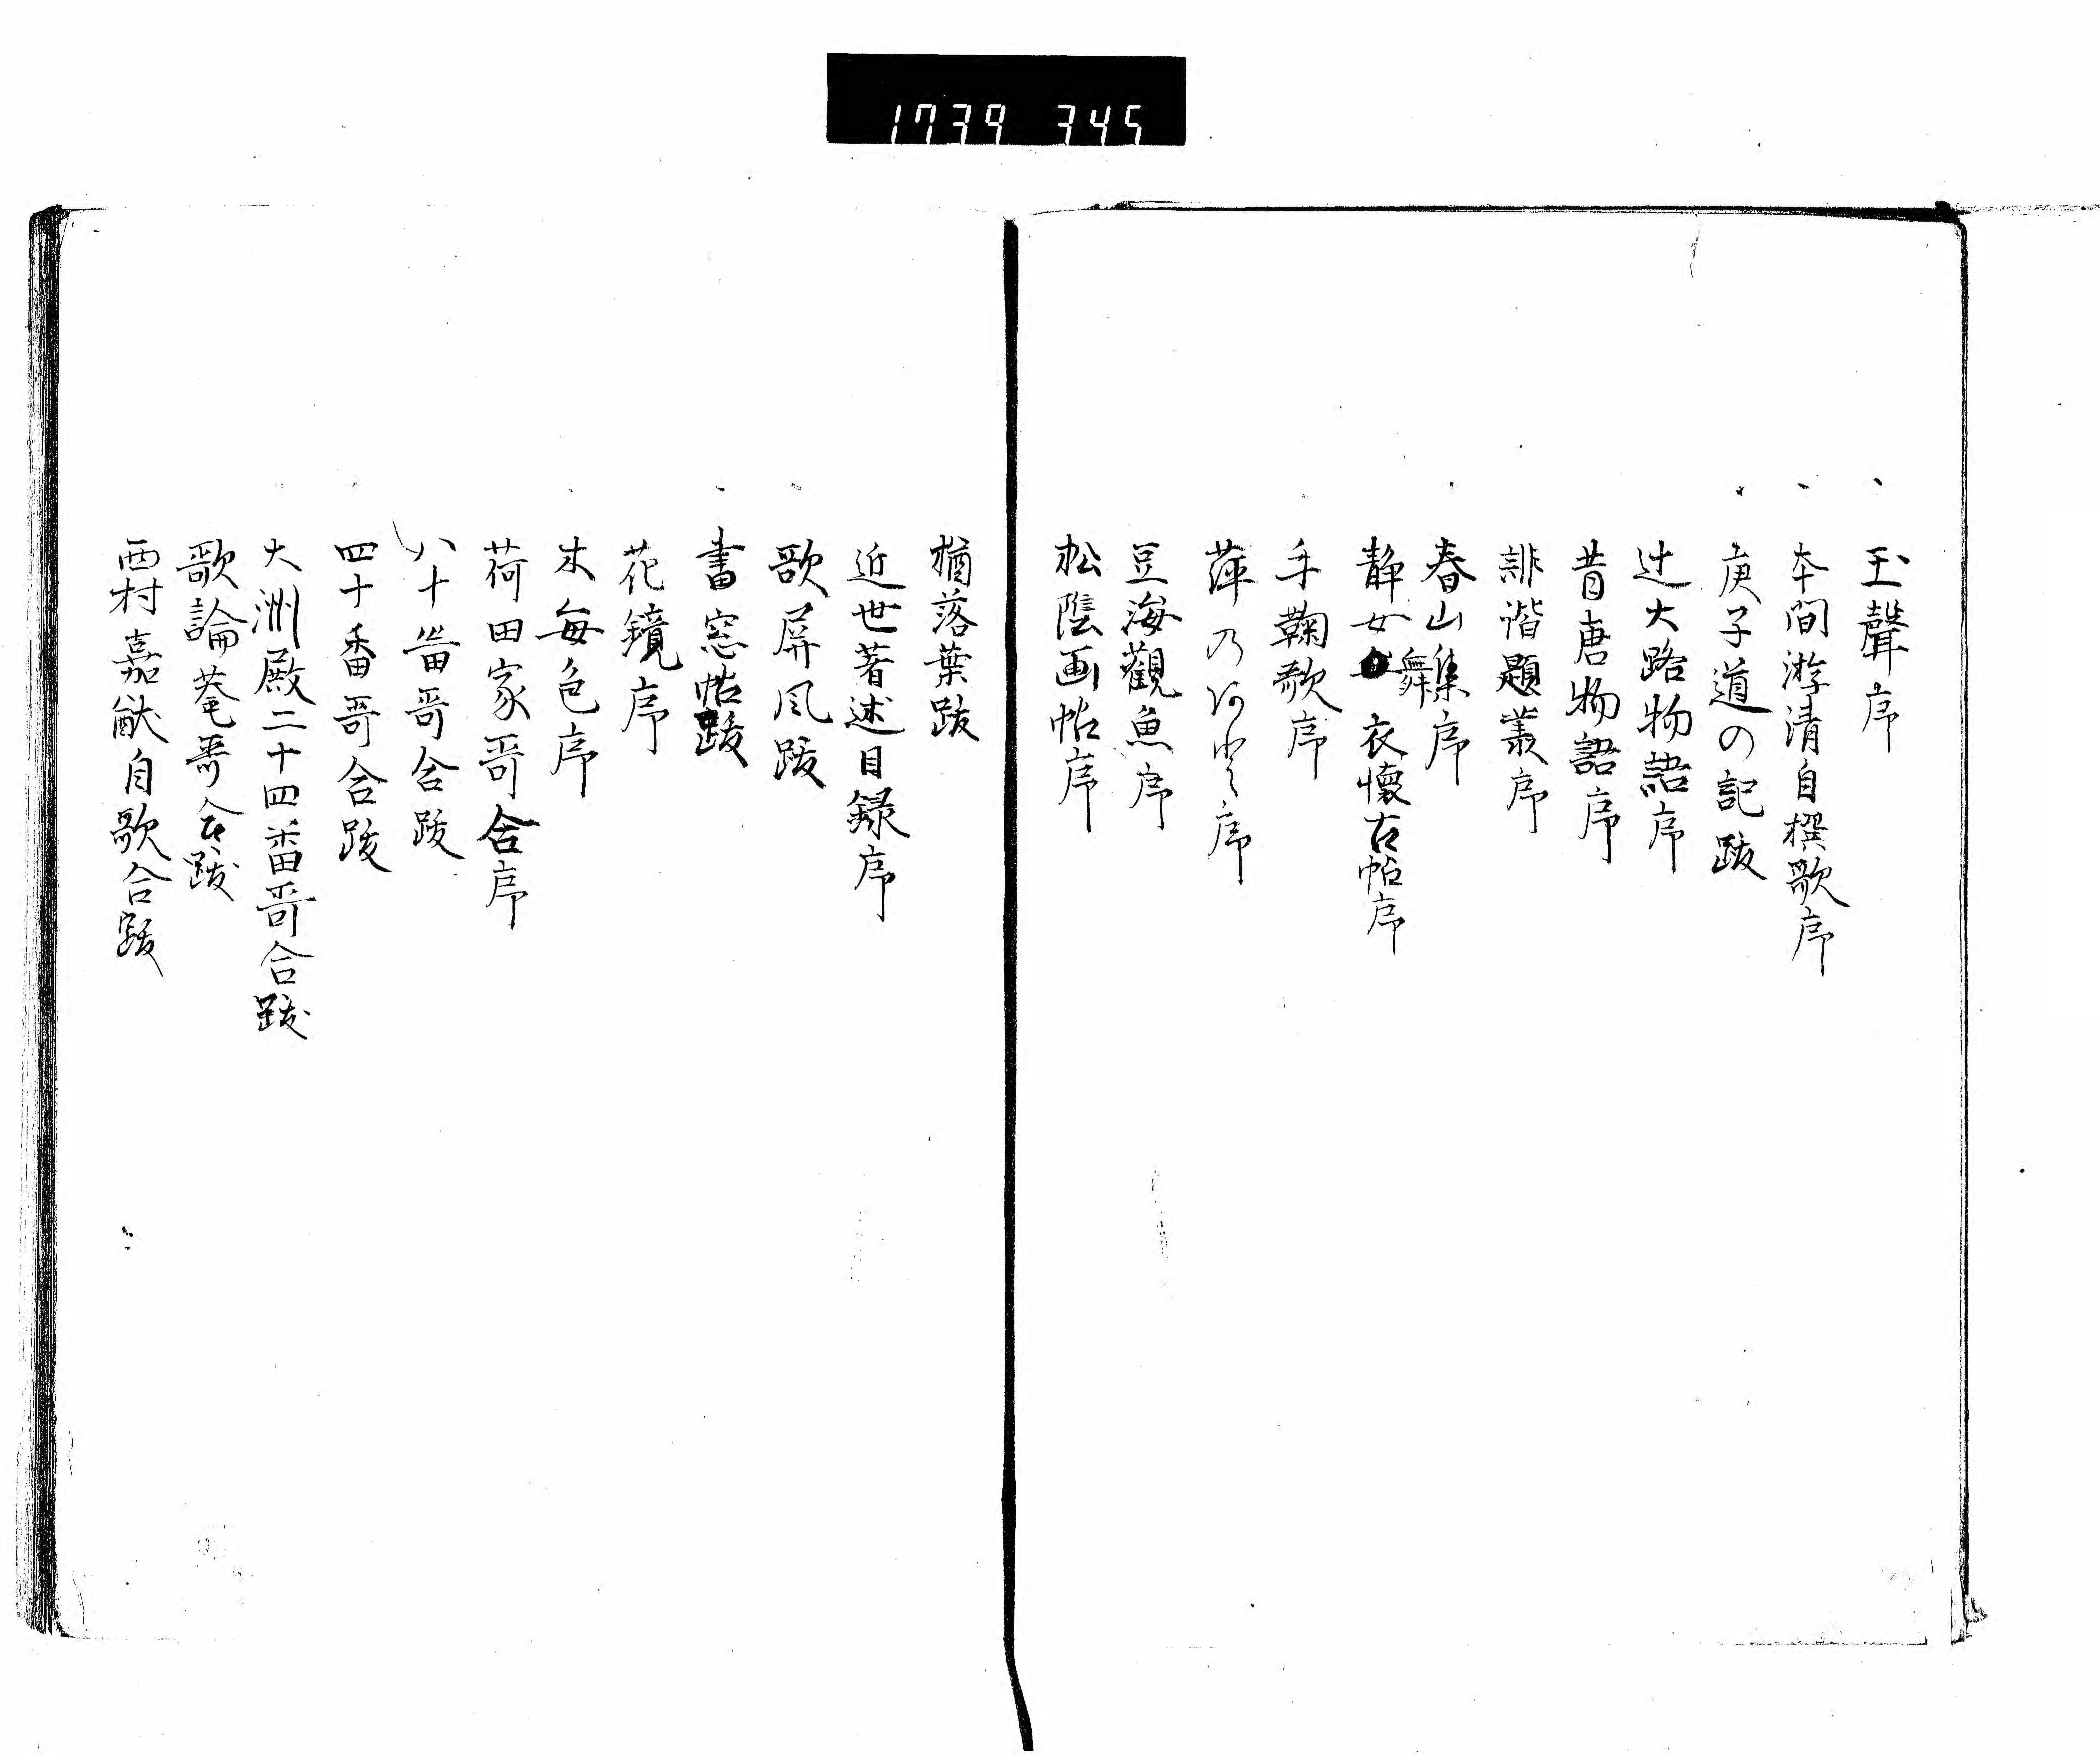 1739 345
玉聲序
本間游清自撰歌序
庚子道の記跋
辻大路物語序
昔唐物語序
誹谐題叢序
春山集序
静女舞衣懐古帖序
手鞠歌序
萍乃序
豆海觀魚序
松陰画帖序
楢落葉跋
近世著述目録序
歌屏风跋
書窓帖跋
花鏡序
木毎色序
荷田家哥合序
八十番哥合跋
四十番哥合跋
大洲殿二十四番哥合跋
歌論菴哥合跋
西村嘉猷自歌合跋